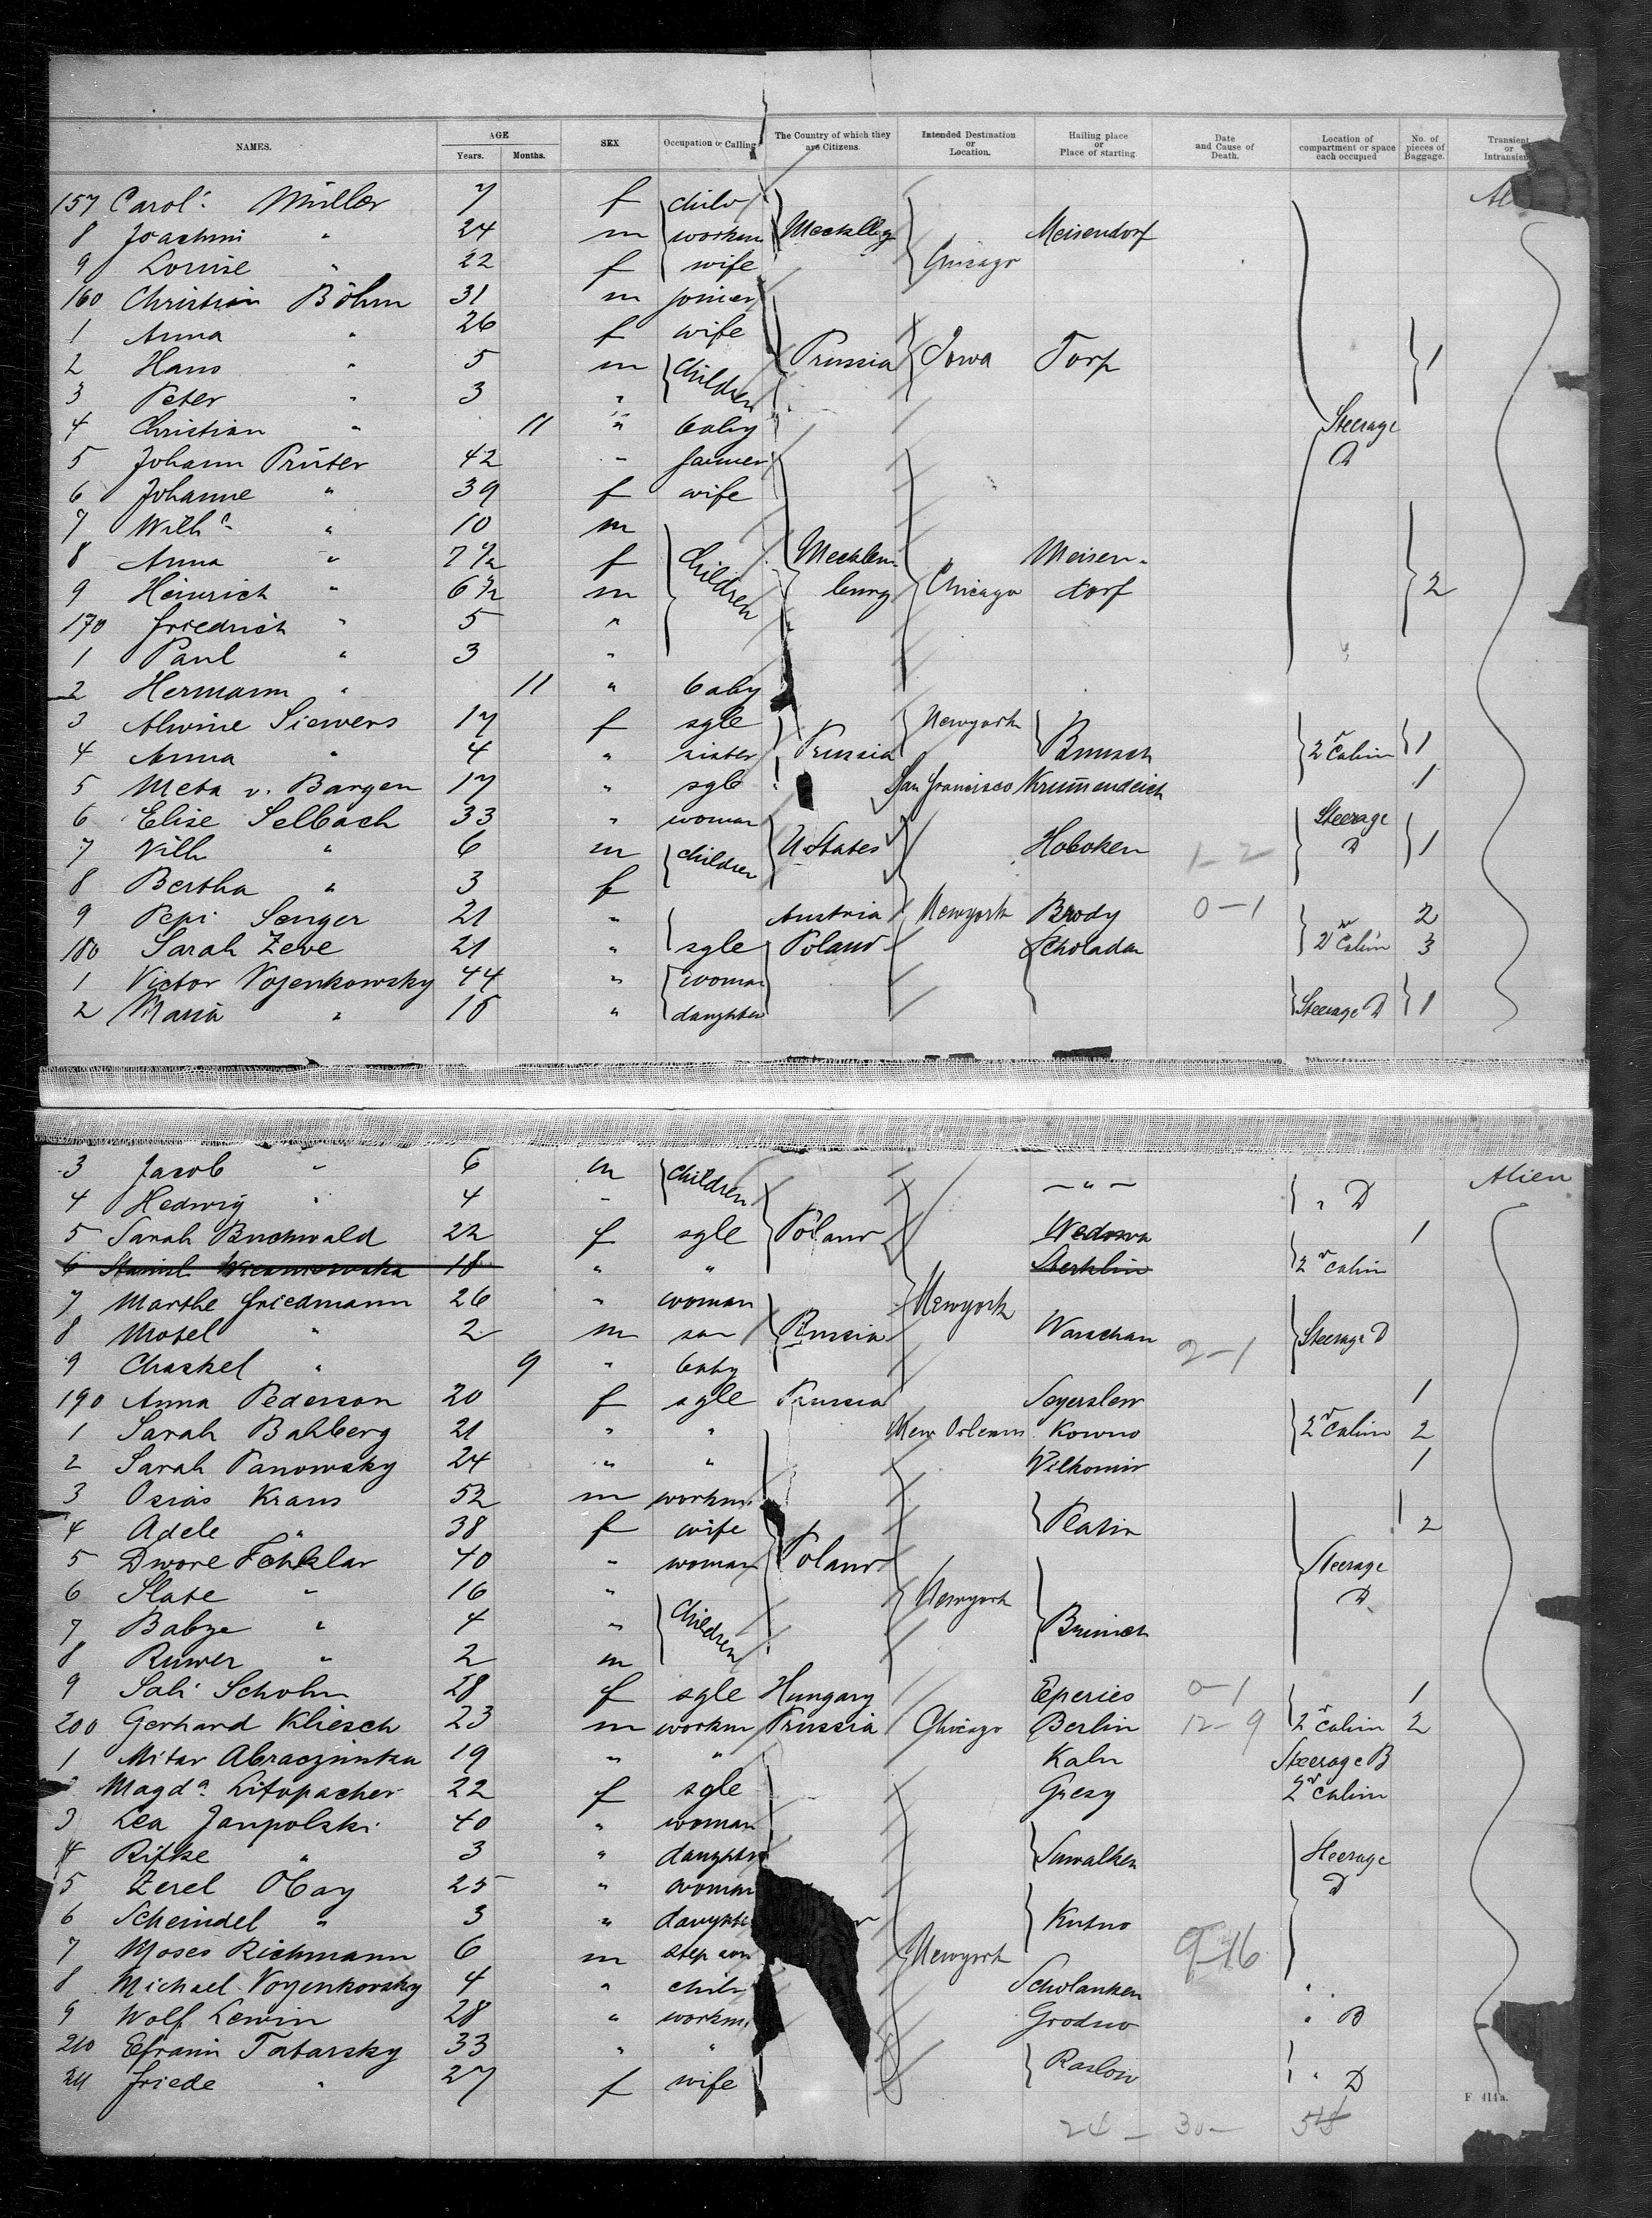 NAMES. AGE SEX Occupation or Calling The Country of which they are Citizens. Intended Destination or Location. Hailing place or Place of starting Date and Cause of Death. Location of compartment or space each occupied No. of pieces of Baggage. Transient or
Years. Months.
157 Carol: Müller 7 f child
8 Joachim " 24 m workm Meisendorf
9 Louise " 22 f wife Chicago
160 Christian Böhm 31 m joiner
1 Anna " 26 f wife
2 Hans " 5 m children Prussia Iowa Torp 1
3 Peter " 3 "
4 Christian " 11 " baby Steerage
5 Johann Prüter 42 " farmer D
6 Johanne " 39 f wife
7 Wilh " 10 m
8 Anna " 7 1/2 f children Mecklen- Meisen-
9 Heinrich " 6 1/2 m burg Chicago dorf 2
170 Friedrich " 5 "
1 Paul " 3 "
2 Hermann " 11 " baby
3 Alwine Siewers 17 f sgle Newyork
4 Anna " 4 " sister Prussia 2r Cabin 1
5 Meta v. Bargen 17 " sgle San Francisco Krummendeich 1
6 Elise Selbach 33 " woman Steerage
7 Wilh " 6 m children U States Hoboken 1-2 D 1
8 Bertha " 3 f
9 Pepi Senger 21 " Austria Newyork Brody 0-1 2
180 Sarah Zeve 21 " sgle Poland 2r Cabin 3
1 Victor Nojenkowsky 44 " woman
2 Maria " 18 " daughter Steerage D 1
3 Jacob " 6 m children - " - Alien
4 Hedwig " 4 " " D
5 Sarah Buchwald 22 f sgle Poland 1
6 18 " " 2r Cabin
7 Marthe Friedmann 26 " woman Newyork
8 Motel " 2 m son Russia Warschau Steerage D
9 Chaskel " 9 " baby 2-1
190 Anna Pederson 20 f sgle Prussia 1
1 Sarah Bahlberg 21 " " New Orleans Kowno 2r Cabin 2
2 Sarah Panowsky 24 " " Wilkomir 1
3 Osias Kraus 52 m workm.
4 Adele " 38 f wife 2
5 Dwore 40 " woman Poland Steerage
6 Slate " 16 " Newyork D
7 " 4 " children
8 Ruwer " 2 m
9 Sali Scholm 28 f sgle Hungary Eperies 0-1 1
200 Gerhard Kliesch 23 m workm Prussia Chicago Berlin 12-9 2r Cabin 2
1 19 " " Steerage B
Magda. 22 f sgle 2r Cabin
3 Lea Janpolski 40 " woman
4 Rifke " 3 " daughter Suwalken Steerage
5 Zerel 25 " woman D
6 Scheindel " 3 " daughte Kutno
7 Moses Richmann 6 m step son Newyork 9-16
8 Michael Nojenkovsky 4 " child
9 Wolf Lewin 28 " workm. Grodno " B
210 Efraim Tatarsky 33 " "
211 Friede " 27 f wife " D
F. 414a.
24 - 30 -